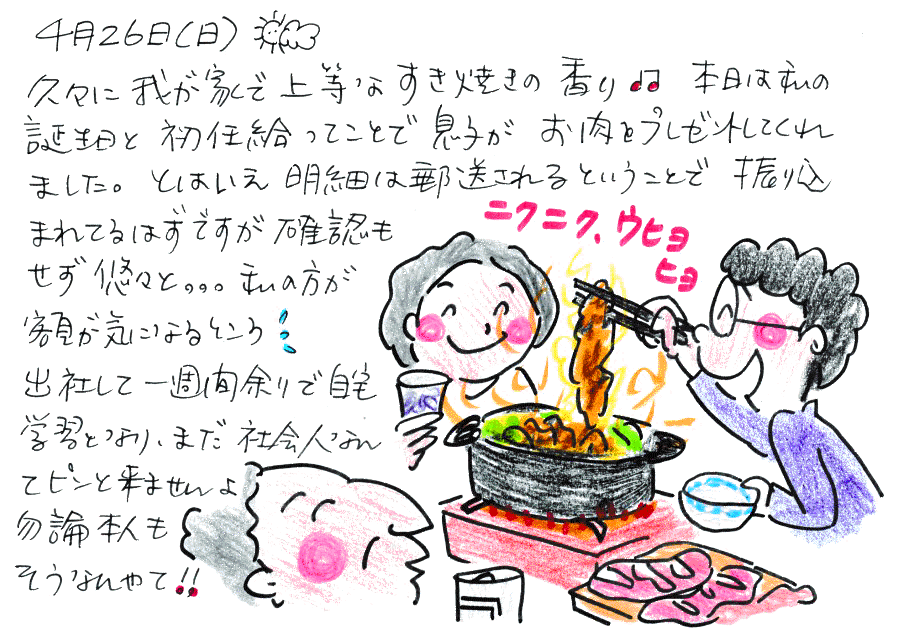 4月26日(日)
久々に我が家で上等なすき焼きの香り♫ 本日は私の
誕生日と初任給ってことで息子がお肉をプレゼントしてくれ
ました。とはいえ明細は郵送されるということで振り込
まれてるはずですが確認も
せず悠々と。。。私の方が
額が気になるところ!
出社して一週間余りで自宅
学習となり、まだ社会人なん
てピンと来ませんよ
勿論本人も
そうなんやて!!
ニクニク、ウヒョ
ヒョ